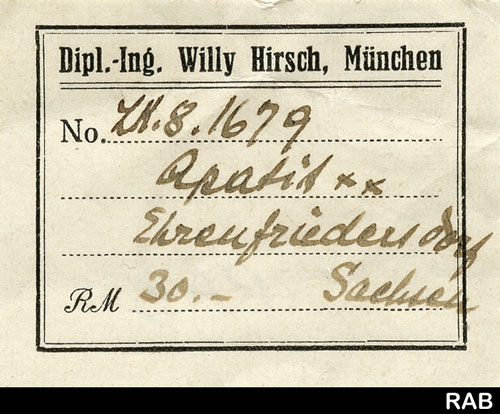 Dipl.-Ing. Willy Hirsch, München
No. LN.8.1679
Apatit xx
Ehrenfriedersdorf
RM 30.- Sachsen
RAB